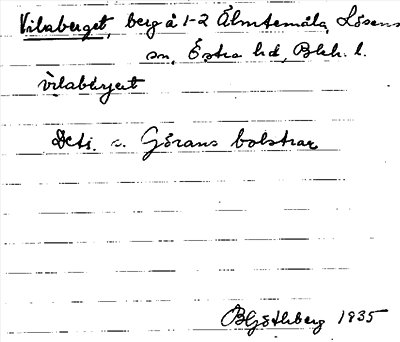 Vilaberget, berg å 1-2 Älmtemåla, Lösens
sn, Östra hd, Blek. l.
vilabärjert
Deti. s. Görans bolstrar
BGötlberg 1935